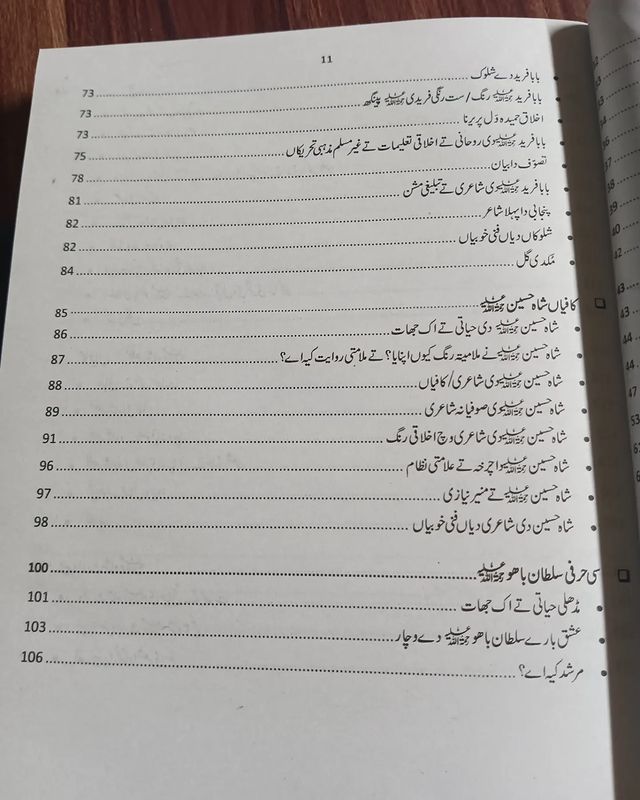 11
بابا فرید دے شلوک ........ 73
بابا فرید رحمۃ اللہ علیہ رنگ / ست رنگی فریدی رحمۃ اللہ علیہ پینگھ ........ 73
اخلاق حمیدہ ول پریرنا ........ 73
بابا فرید رحمۃ اللہ علیہ دی روحانی تے اخلاقی تعلیمات تے غیر مسلم مذہبی تحریکاں ........ 75
تصوّف دا بیان ........ 78
بابا فرید رحمۃ اللہ علیہ دی شاعری تے تبلیغی مشن ........ 81
پنجابی دا پہلا شاعر ........ 82
شلوکاں دیاں فنی خوبیاں ........ 82
مُکدی گل ........ 84
کافیاں شاہ حسین رحمۃ اللہ علیہ ........ 85
شاہ حسین رحمۃ اللہ علیہ دی حیاتی تے اک جھات ........ 86
شاہ حسین رحمۃ اللہ علیہ نے ملامتیہ رنگ کیوں اپنایا؟ تے ملامتی روایت کیہ اے؟ ........ 87
شاہ حسین رحمۃ اللہ علیہ دی شاعری / کافیاں ........ 88
شاہ حسین رحمۃ اللہ علیہ دی صوفیانہ شاعری ........ 89
شاہ حسین رحمۃ اللہ علیہ دی شاعری وچ اخلاقی رنگ ........ 91
شاہ حسین رحمۃ اللہ علیہ دا چرخہ تے علامتی نظام ........ 96
شاہ حسین رحمۃ اللہ علیہ تے منیر نیازی ........ 97
شاہ حسین دی شاعری دیاں فنی خوبیاں ........ 98
سی حرفی سلطان باھو رحمۃ اللہ علیہ ........ 100
مڈھلی حیاتی تے اک جھات ........ 101
عشق بارے سلطان باھو رحمۃ اللہ علیہ دے وچار ........ 103
مرشد کیہ اے؟ ........ 106